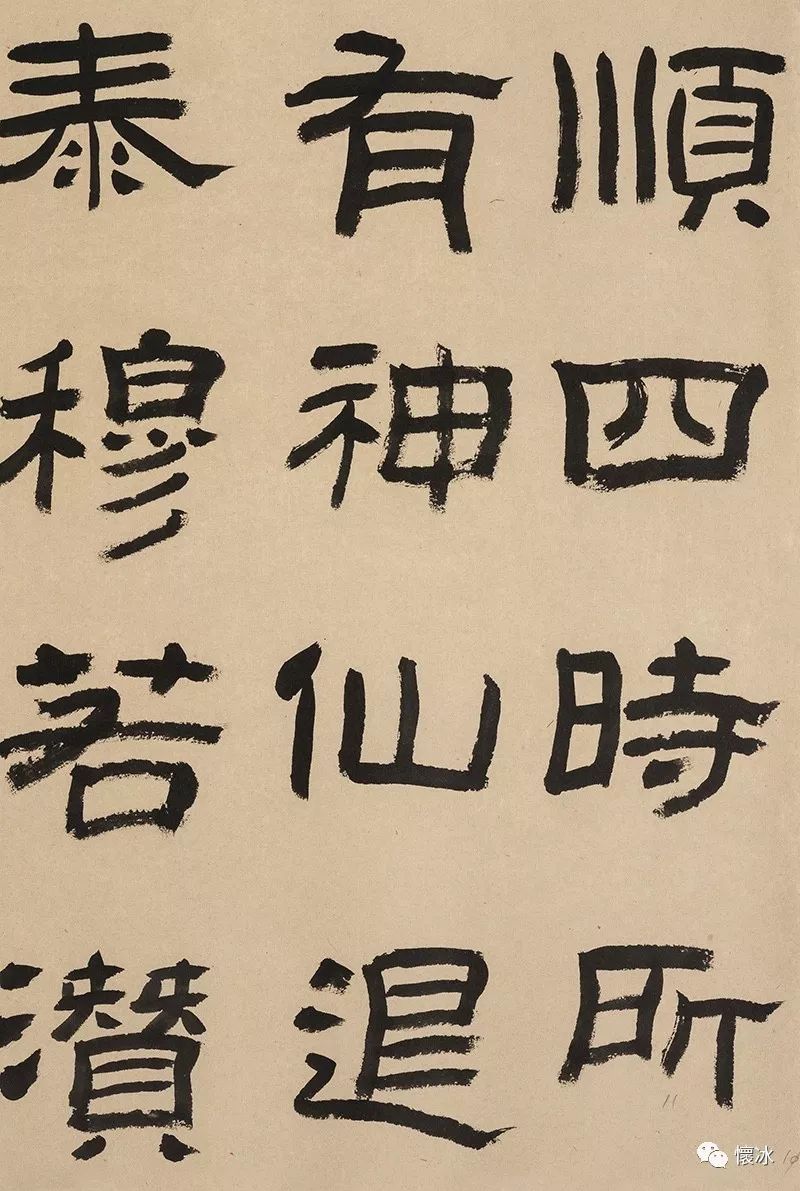 順四時所
有神仙退
泰穆若濽
懷冰